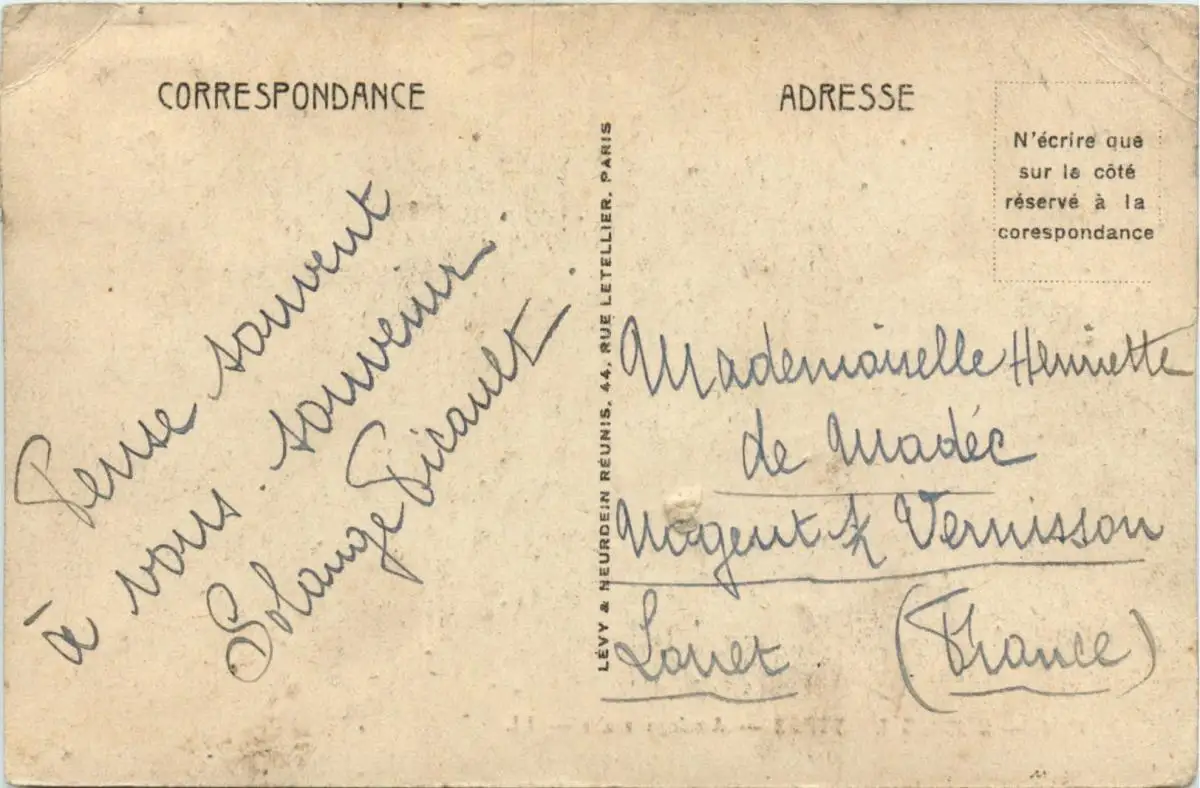 CORRESPONDANCE
Pense souvent
à vous. souvenir
Solange Picault
LÉVY & NEURDEIN RÉUNIS, 44, RUE LETELLIER, PARIS
ADRESSE
N'écrire que
sur le côté
réservé à la
corespondance
Mademoiselle Henriette
de Madéc
Nogent s/ Vernisson
Loiret (France)